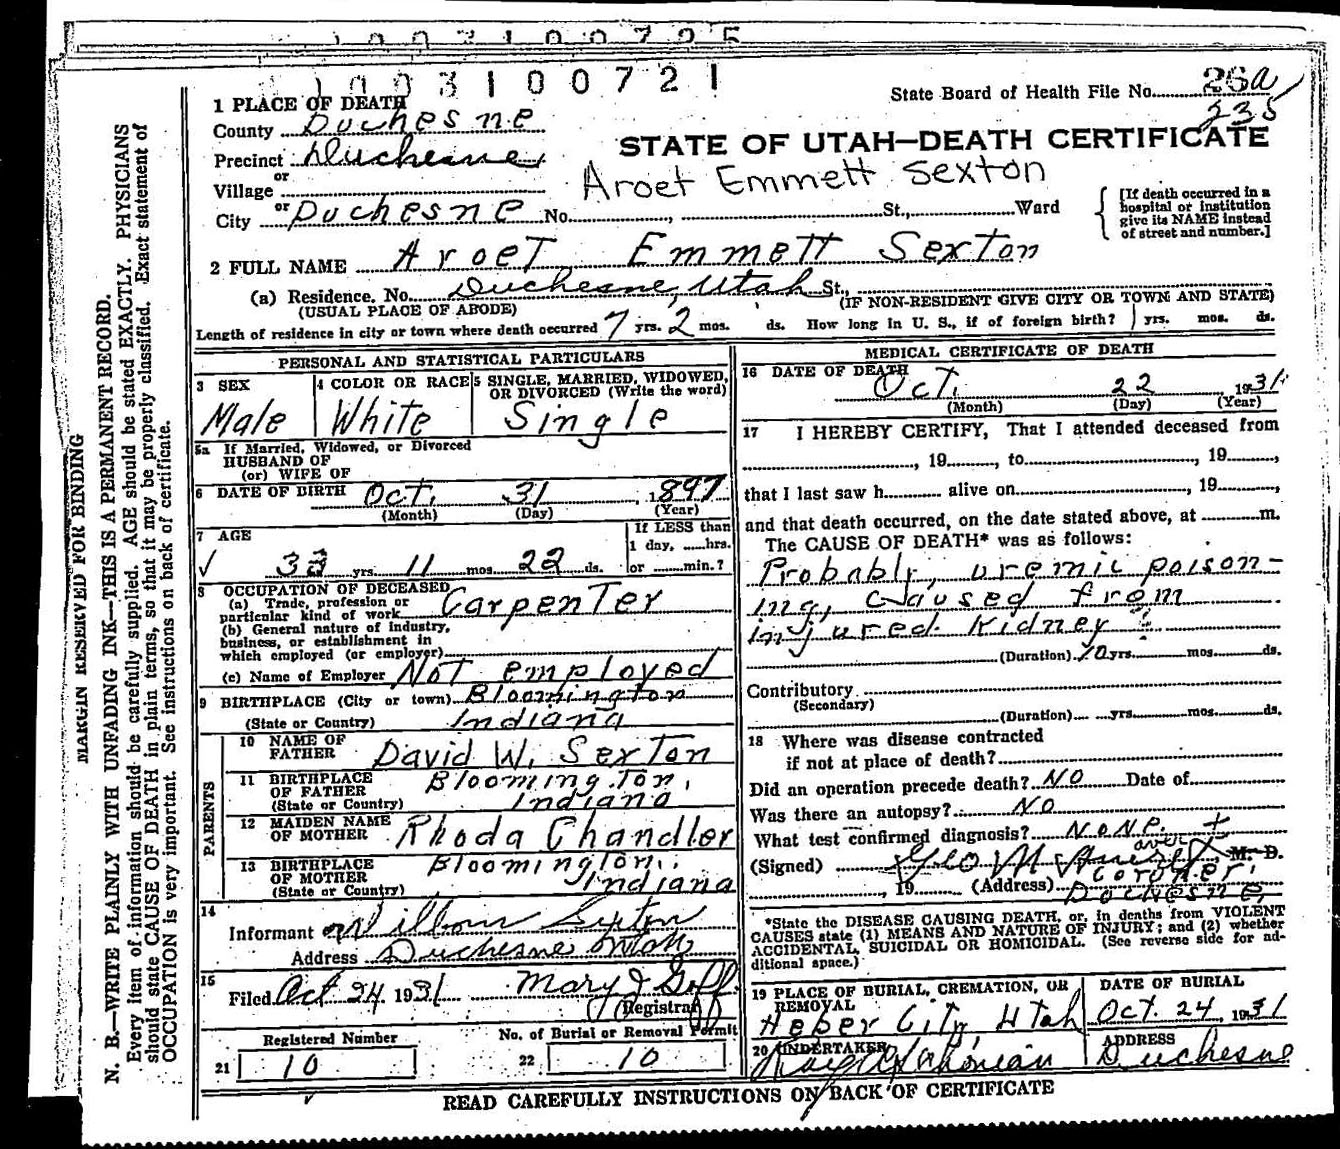 1003100725
1003100721
State Board of Health File No. 26a
235
1 PLACE OF DEATH
County Duchesne
STATE OF UTAH—DEATH CERTIFICATE
Precinct Duchesne
or
Village
Aroet Emmett Sexton
City or Duchesne No. , St., Ward
[If death occurred in a
hospital or institution
give its NAME instead
of street and number.]
2 FULL NAME Aroet Emmett Sexton
(a) Residence. No. Duchesne, Utah St.,
(USUAL PLACE OF ABODE) (IF NON-RESIDENT GIVE CITY OR TOWN AND STATE)
Length of residence in city or town where death occurred 7 yrs. 2 mos. ds. How long in U. S., if of foreign birth? yrs. mos. ds.
PERSONAL AND STATISTICAL PARTICULARS
3 SEX
Male
4 COLOR OR RACE
White
5 SINGLE, MARRIED, WIDOWED,
OR DIVORCED (Write the word)
Single
5a If Married, Widowed, or Divorced
HUSBAND OF
(or) WIFE OF
6 DATE OF BIRTH Oct. 31, 1897
(Month) (Day) (Year)
7 AGE
33 yrs. 11 mos. 22 ds.
If LESS than
1 day, hrs.
or min.?
8 OCCUPATION OF DECEASED
(a) Trade, profession or
particular kind of work Carpenter
(b) General nature of industry,
business, or establishment in
which employed (or employer)
(c) Name of Employer Not employed
9 BIRTHPLACE (City or town) Bloomington
(State or Country) Indiana
PARENTS
10 NAME OF
FATHER David W. Sexton
11 BIRTHPLACE
OF FATHER Bloomington,
(State or Country) Indiana
12 MAIDEN NAME
OF MOTHER Rhoda Chandler
13 BIRTHPLACE
OF MOTHER Bloomington,
(State or Country) Indiana
14
Informant Sexton
Address Duchesne Utah
15
Filed Oct 24 1931 Mary J Goff
Registrar
Registered Number
21 10
No. of Burial or Removal Permit
22 10
MEDICAL CERTIFICATE OF DEATH
16 DATE OF DEATH
Oct. 22, 1931
(Month) (Day) (Year)
17 I HEREBY CERTIFY, That I attended deceased from
, 19 , to , 19 ,
that I last saw h alive on , 19 ,
and that death occurred, on the date stated above, at m.
The CAUSE OF DEATH* was as follows:
Probably, uremic poison-
ing, caused from
injured kidney
(Duration) 10 yrs. mos. ds.
Contributory
(Secondary)
(Duration) yrs. mos. ds.
18 Where was disease contracted
if not at place of death?
Did an operation precede death? No Date of
Was there an autopsy? No
What test confirmed diagnosis? None. +
over
(Signed) Geo M M. D.
Coroner,
, 19 (Address) Duchesne,
*State the DISEASE CAUSING DEATH, or, in deaths from VIOLENT
CAUSES state (1) MEANS AND NATURE OF INJURY; and (2) whether
ACCIDENTAL, SUICIDAL OR HOMICIDAL. (See reverse side for ad-
ditional space.)
19 PLACE OF BURIAL, CREMATION, OR
REMOVAL
Heber City, Utah
DATE OF BURIAL
Oct. 24, 1931
20 UNDERTAKER
ADDRESS
Duchesne
READ CAREFULLY INSTRUCTIONS ON BACK OF CERTIFICATE
MARGIN RESERVED FOR BINDING
N. B.—WRITE PLAINLY WITH UNFADING INK—THIS IS A PERMANENT RECORD.
Every item of information should be carefully supplied. AGE should be stated EXACTLY. PHYSICIANS
should state CAUSE OF DEATH in plain terms, so that it may be properly classified. Exact statement of
OCCUPATION is very important. See instructions on back of certificate.